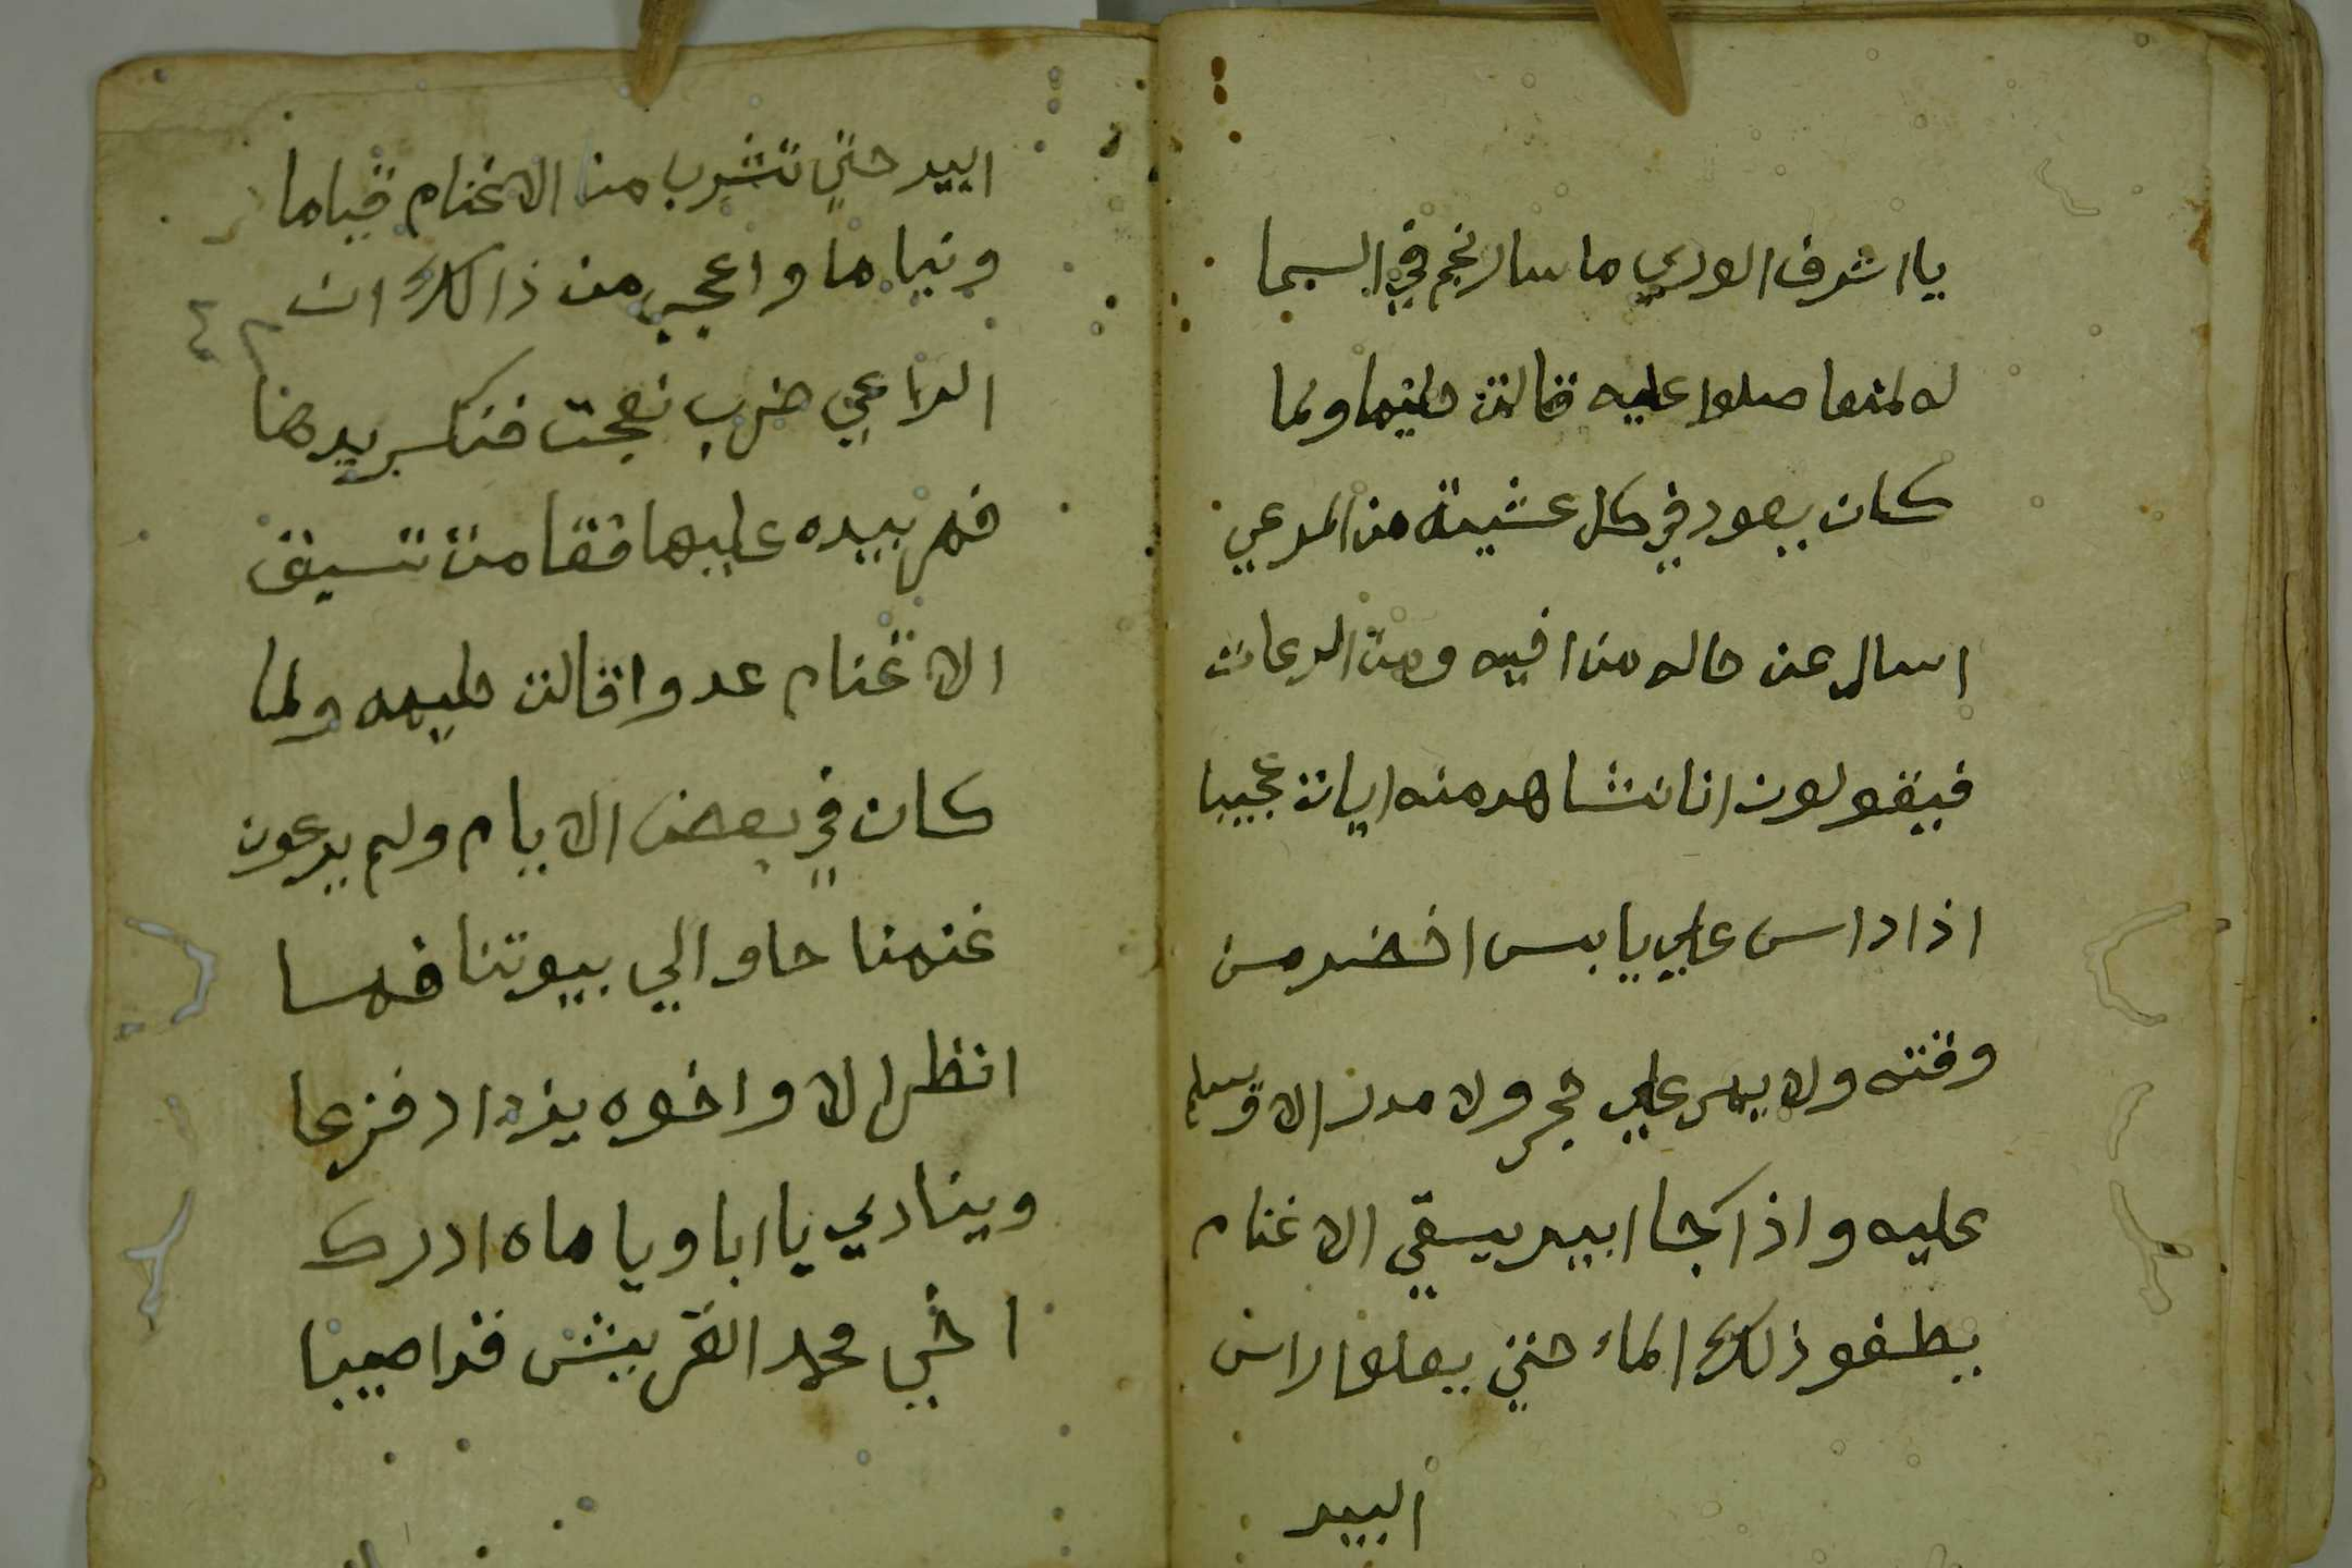 يا اشرف الوري ما سار نجم في السما
له لمنعا صلوا عليه قالت حليما ولما
كان يعود في كل عشية من المرعي
اسال عن حاله من اخيه ومن الرعات
فيقولون انا نشاهد منه ايات عجيبا
اذا داس علي يابس اخضر من
وقته ولا يمر علي حجر ولا مدر الا وسلم
عليه واذا جا البير يسقي الاغنام
يطفو ذلك الماء حتي يعلوا راس
البير
البير حتي تشرب منا الاغنام قياما
ونياما واعجب من ذالك ان
الراعي ضرب نعجت فنكسر يدها
فمر بيده عليها فقامت تسبق
الاغنام عدوا قالت حليمه ولما
كان في بعض الايام ولم يرعون
غنمنا حاوالي بيوتنا فمسا
انظر الا واخوه يزداد فزعا
وينادي يا ابا ويا ماه ادرك
اخي محمد القريش فداصيبا